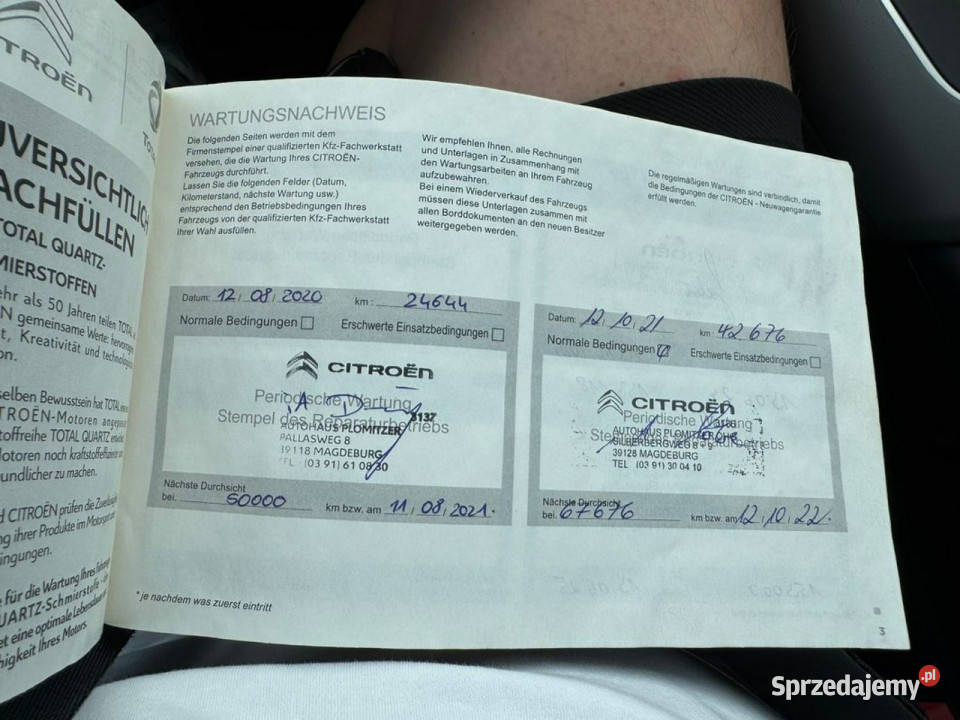 TROËN
Total
UVERSICHTLICH
ACHFÜLLEN
TOTAL QUARTZ-
MIERSTOFFEN
ehr als 50 Jahren teilen TOTAL
EN gemeinsame Werte: hervorragende
t, Kreativität und technologische
on.
selben Bewusstsein hat TOTAL
TROËN-Motoren angepasst
toffreihe TOTAL QUARTZ
Motoren noch kraftstoffeffizienter
undlicher zu machen.
d CITROËN prüfen die
ng ihrer Produkte im Motorsport
ingungen.
e für die Wartung Ihres
UARTZ-Schmierstoffe -
et eine optimale Lebensdauer
higkeit Ihres Motors.
WARTUNGSNACHWEIS
Die folgenden Seiten werden mit dem
Firmenstempel einer qualifizierten Kfz-Fachwerkstatt
versehen, die die Wartung Ihres CITROËN-
Fahrzeugs durchführt.
Lassen Sie die folgenden Felder (Datum,
Kilometerstand, nächste Wartung usw.)
entsprechend den Betriebsbedingungen Ihres
Fahrzeugs von der qualifizierten Kfz-Fachwerkstatt
Ihrer Wahl ausfüllen.
Wir empfehlen Ihnen, alle Rechnungen
und Unterlagen in Zusammenhang mit
den Wartungsarbeiten an Ihrem Fahrzeug
aufzubewahren.
Bei einem Wiederverkauf des Fahrzeugs
müssen diese Unterlagen zusammen mit
allen Borddokumenten an den neuen Besitzer
weitergegeben werden.
Die regelmäßigen Wartungen sind verbindlich, damit
die Bedingungen der CITROËN - Neuwagengarantie
erfüllt werden.
Datum: 12, 08, 2020 km: 24644
Normale Bedingungen Erschwerte Einsatzbedingungen
CITROËN
Periodische Wartung
Stempel des Reparaturbetriebs
3137
AUTOHAUS PLOMITZER
PALLASWEG 8
39118 MAGDEBURG
TEL (03 91) 61 08 30
Nächste Durchsicht
bei. 50000 km bzw. am 11, 08, 2021.
Datum: 12, 10, 21 km: 42676
Normale Bedingungen Erschwerte Einsatzbedingungen
CITROËN
Periodische Wartung
Stempel des Reparaturbetriebs
AUTOHAUS PLOMITZER OHG
SILBERBERGWEG 8
39128 MAGDEBURG
TEL (03 91) 30 04 10
Nächste Durchsicht
bei. 67676 km bzw. am 12, 10, 22.
* je nachdem was zuerst eintritt
3
Sprzedajemy.pl